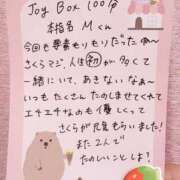 Joy Box 100分
本指名 Mくん
今回も要素もりもりだった
さくらマジ、人生初が多くて
一緒にいて、あきないなぁ〜
いつもたくさんたのしませてくれて
エチエチなのも優しくって
さくらが元気もらいました!
また2人で
たのしいことしよ?